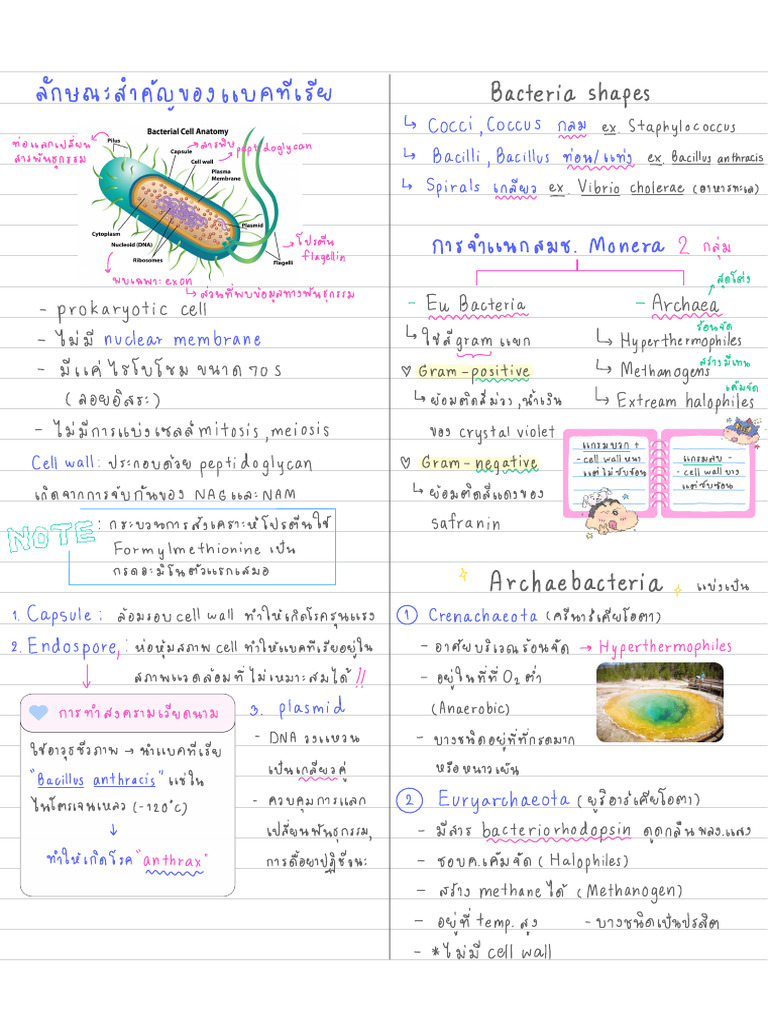 ลักษณะสำคัญของแบคทีเรีย
Bacterial Cell Anatomy
ท่อแลกเปลี่ยน
สารพันธุกรรม
Pilus
Capsule
สารพิษ
peptidoglycan
Cell wall
Plasma
Membrane
Cytoplasm
Nucleoid (DNA)
Ribosomes
Plasmid
Flagelli
โปรตีน
flagellin
พบเฉพาะ exon
↳ ส่วนที่พบข้อมูลทางพันธุกรรม
- prokaryotic cell
- ไม่มี nuclear membrane
- มีแค่ไรโบโซม ขนาด 70 S
(ลอยอิสระ)
- ไม่มีการแบ่งเซลล์ mitosis , meiosis
Cell wall : ประกอบด้วย peptidoglycan
เกิดจากการจับกันของ NAG และ NAM
NOTE : กระบวนการสังเคราะห์โปรตีนใช้
Formylmethionine เป็น
กรดอะมิโนตัวแรกเสมอ
1. Capsule : ล้อมรอบ cell wall ทำให้เกิดโรครุนแรง
2. Endospore, : ห่อหุ้มสภาพ cell ทำให้แบคทีเรียอยู่ใน
สภาพแวดล้อมที่ไม่เหมาะสมได้ !!
การทำสงครามเวียดนาม
ใช้อาวุธชีวภาพ → นำแบคทีเรีย
"Bacillus anthracis" แช่ใน
ไนโตรเจนเหลว (-120°C)
↓
ทำให้เกิดโรค "anthrax"
3. plasmid
- DNA วงแหวน
เป็นเกลียวคู่
- ควบคุมการแลก
เปลี่ยนพันธุกรรม,
การดื้อยาปฏิชีวนะ
Bacteria shapes
↳ Cocci , Coccus กลม ex. Staphylococcus
↳ Bacilli , Bacillus ท่อน/แท่ง ex. Bacillus anthracis
↳ Spirals เกลียว ex. Vibrio cholerae (อาหารทะเล)
การจำแนกสมช. Monera 2 กลุ่ม
- Eu Bacteria
↳ ใช้สี gram แยก
♡ Gram - positive
↳ ย้อมติดสีม่วง , น้ำเงิน
ของ crystal violet
♡ Gram - negative
↳ ย้อมติดสีแดงของ
safranin
สุดโต่ง
- Archaea
ร้อนจัด
↳ Hyperthermophiles
สร้างมีเทน
↳ Methanogens
เค็มจัด
↳ Extream halophiles
แกรมบวก +
- cell wall หนา
แต่ไม่ซับซ้อน
แกรมลบ -
- cell wall บาง
แต่ซับซ้อน
Archaebacteria แบ่งเป็น
① Crenachaeota (ครีนาร์เคียโอตา)
- อาศัยบริเวณร้อนจัด → Hyperthermophiles
- อยู่ในที่ที่ O2 ต่ำ
(Anaerobic)
- บางชนิดอยู่ที่ที่กรดมาก
หรือหนาวเย็น
② Euryarchaeota (ยูริอาร์เคียโอตา)
- มีสาร bacteriorhodopsin ดูดกลืนพลง.แสง
- ชอบค.เค็มจัด (Halophiles)
- สร้าง methane ได้ (Methanogen)
- อยู่ที่ temp. สูง - บางชนิดเป็นปรสิต
- *ไม่มี cell wall